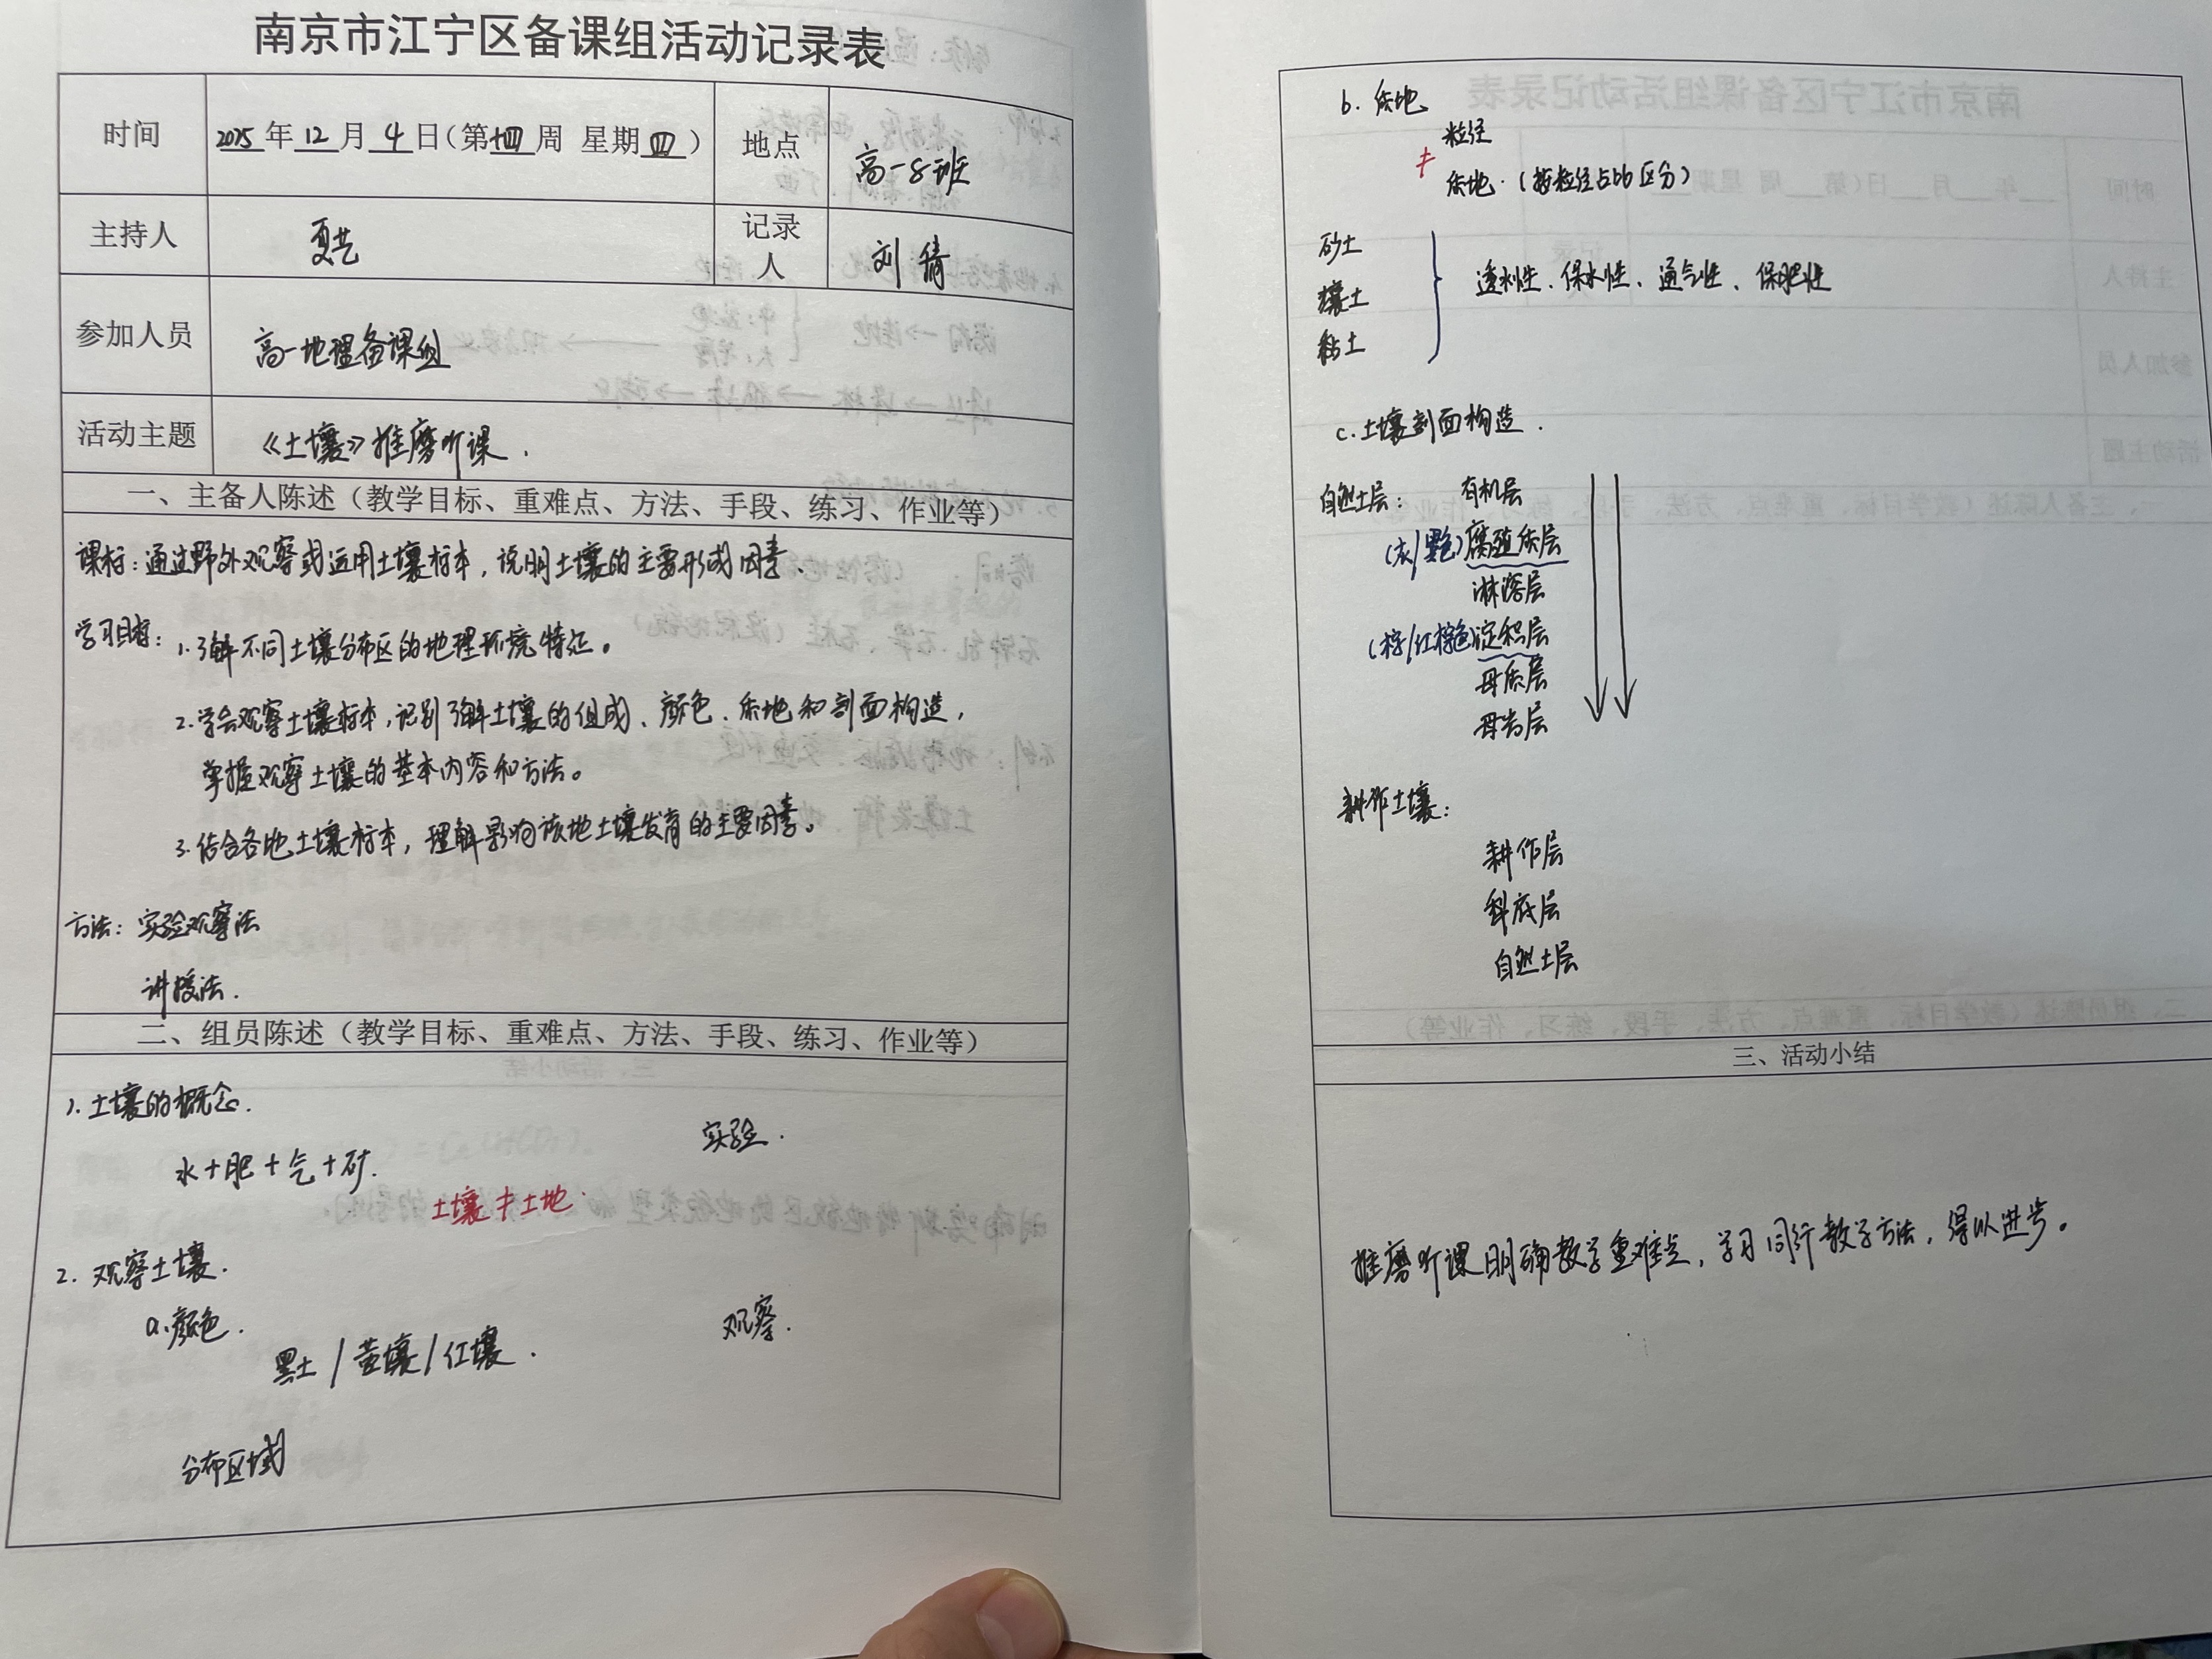 南京市江宁区备课组活动记录表
时间 2025年12月4日(第十四周 星期四) 地点 高一8班
主持人 夏芸 记录人 刘倩
参加人员 高一地理备课组
活动主题 《土壤》推磨听课.
一、主备人陈述（教学目标、重难点、方法、手段、练习、作业等）
课标：通过野外观察或运用土壤标本，说明土壤的主要形成因素.
学习目标：1.了解不同土壤分布区的地理环境特征。
2.学会观察土壤标本，识别了解土壤的组成、颜色、质地和剖面构造，
掌握观察土壤的基本内容和方法。
3.结合各地土壤标本，理解影响该地土壤发育的主要因素。
方法：实验观察法
讲授法.
二、组员陈述（教学目标、重难点、方法、手段、练习、作业等）
1.土壤的概念.
实验.
水+肥+气+矿.
土壤≠土地.
2.观察土壤.
a.颜色.
观察.
黑土/黄壤/红壤.
分布区域
b.质地
粒径
≠
质地.(按粒径占比区分)
砂土
壤土
粘土
透水性、保水性、通气性、保肥性
c.土壤剖面构造.
自然土层：有机层
(灰/黑色)腐殖质层
淋溶层
(棕/红棕色)淀积层
母质层
母岩层
耕作土壤：
耕作层
犁底层
自然土层
三、活动小结
推磨听课明确教学重难点，学习同行教学方法，得以进步。